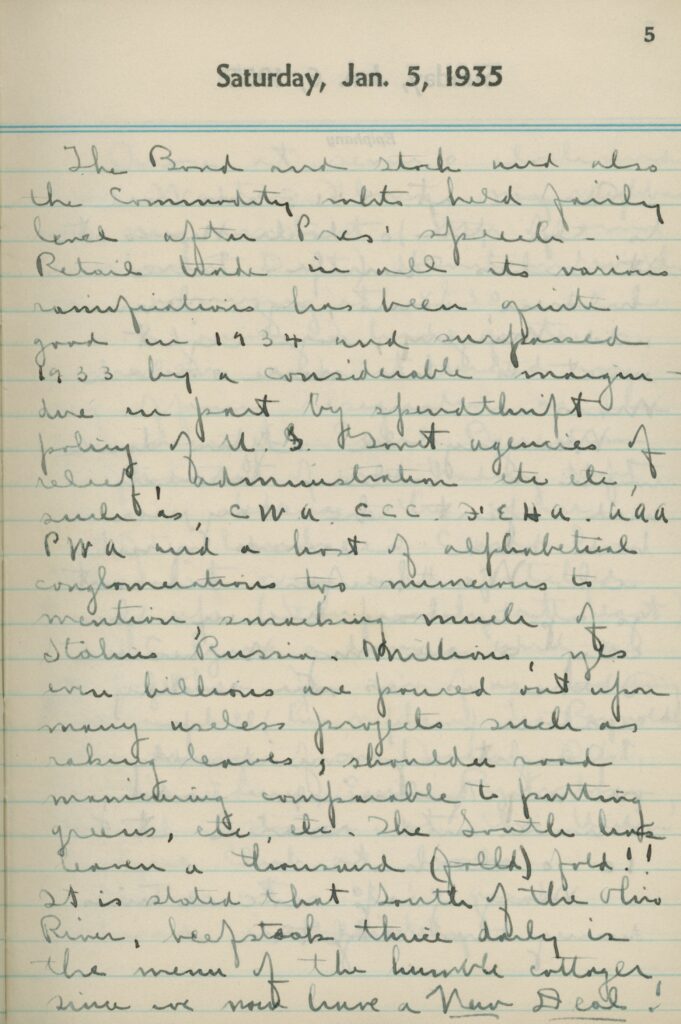 5
Saturday, Jan. 5, 1935
The Bond and stock and also
the Commodity mkts held fairly
level after Pres' speech -
Retail trade in all its various
ramifications has been quite
good in 1934 and surpassed
1933 by a considerable margin -
due in part by spendthrift
policy of U. S. Govt agencies of
relief, administration etc etc,
such as, CWA. CCC. FEHA. AAA
PWA and a host of alphabetical
conglomerations too numerous to
mention, smacking much of
Stalins Russia. Millions, yes
even billions are poured out upon
many useless projects such as
raking leaves, shoulder road
manicuring comparable to putting
greens, etc, etc. The South has
a thousand (folld) fold!!
It is stated that South of the Ohio
River, beefsteak thrice daily is
the menu of the humble cottager
since we now have a New Deal!